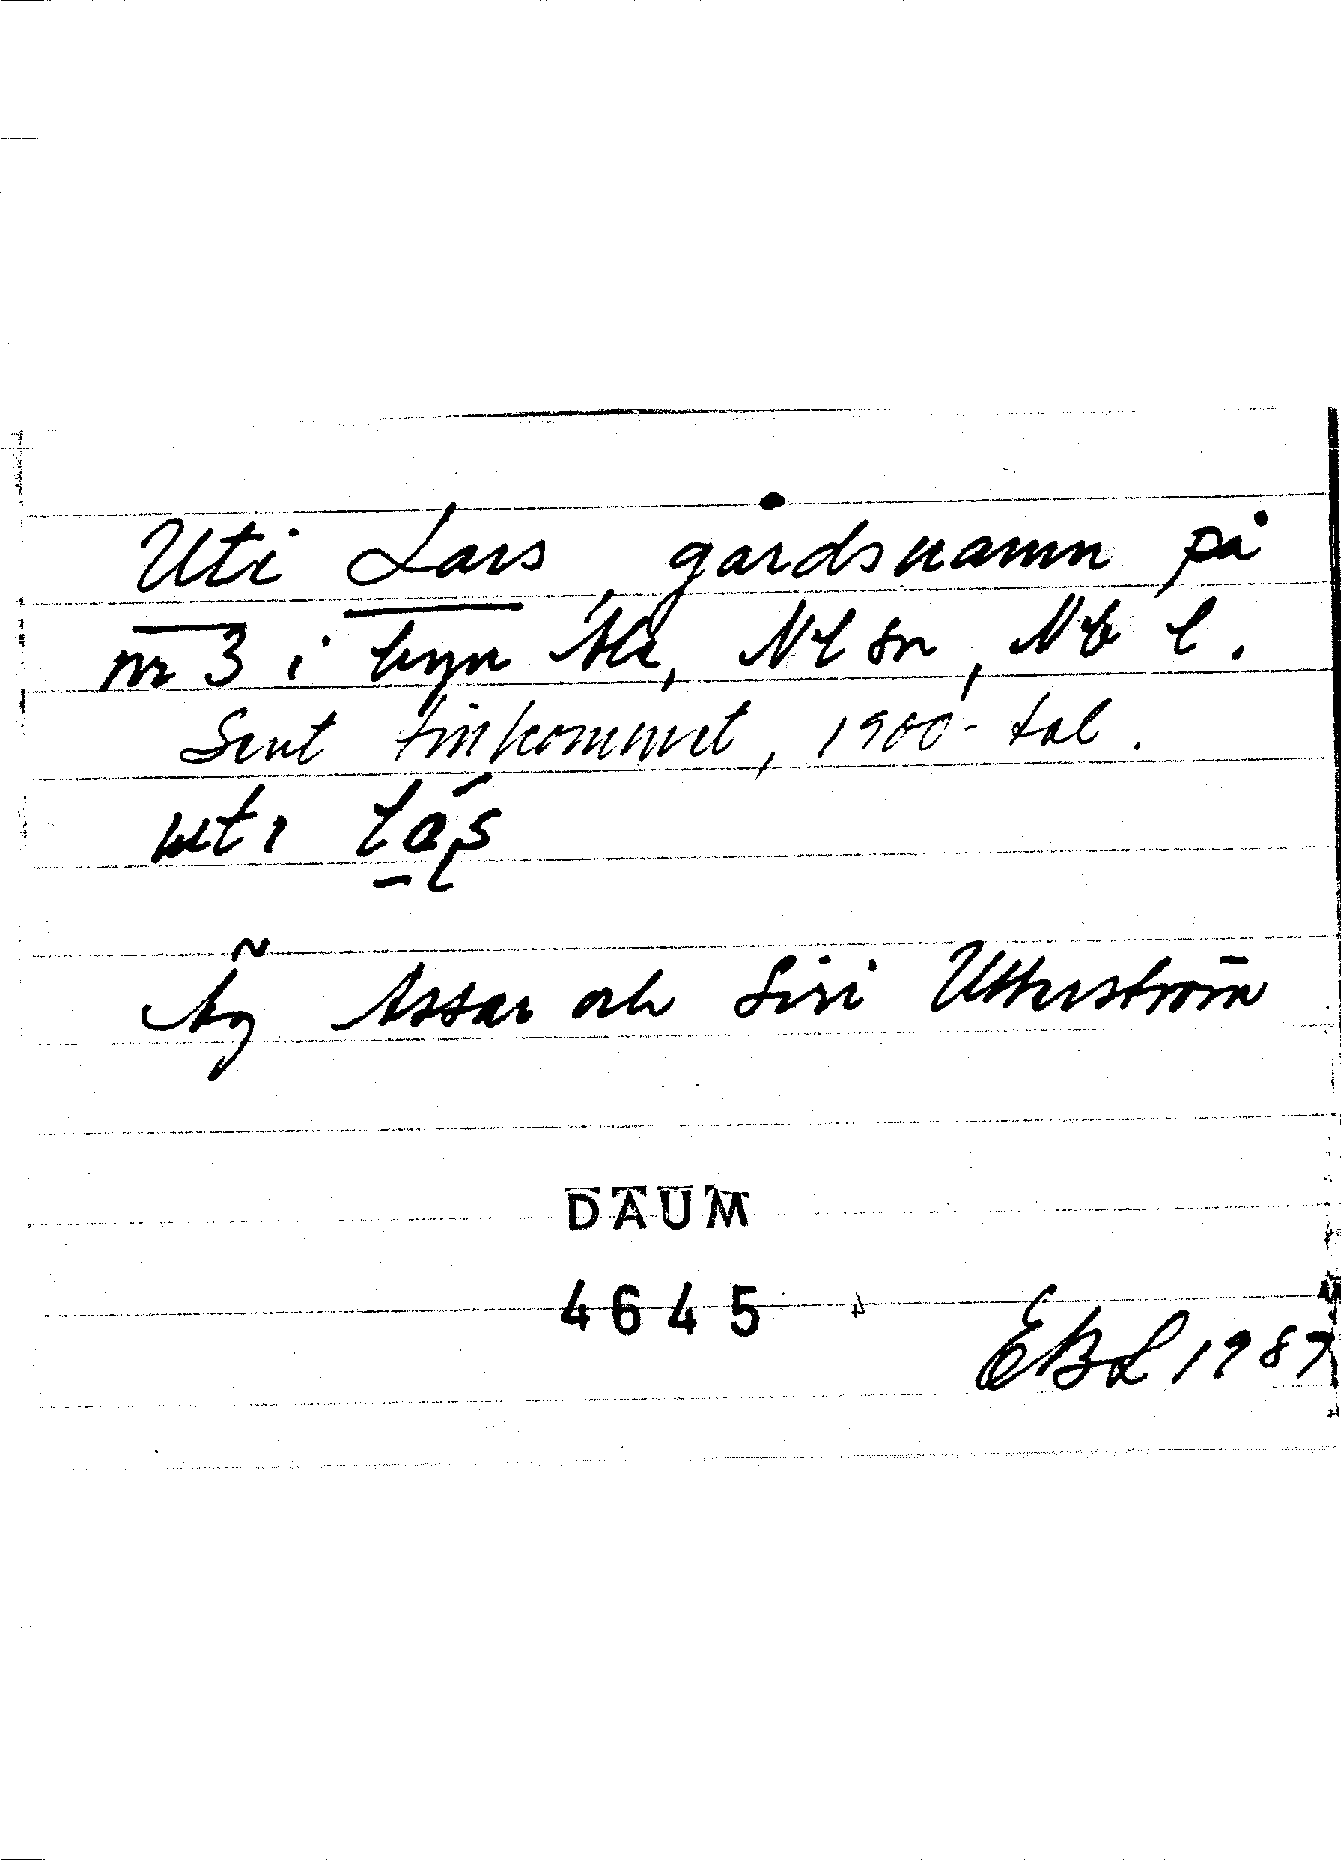 Uti Lars gårdsnamn på
nr 3 i byn Ale, Nl sn, Nb l.
Sent tillkommet, 1900-tal.
uti
Äg Assar och Siri Utterström
DAUM
4645
EBL 1987